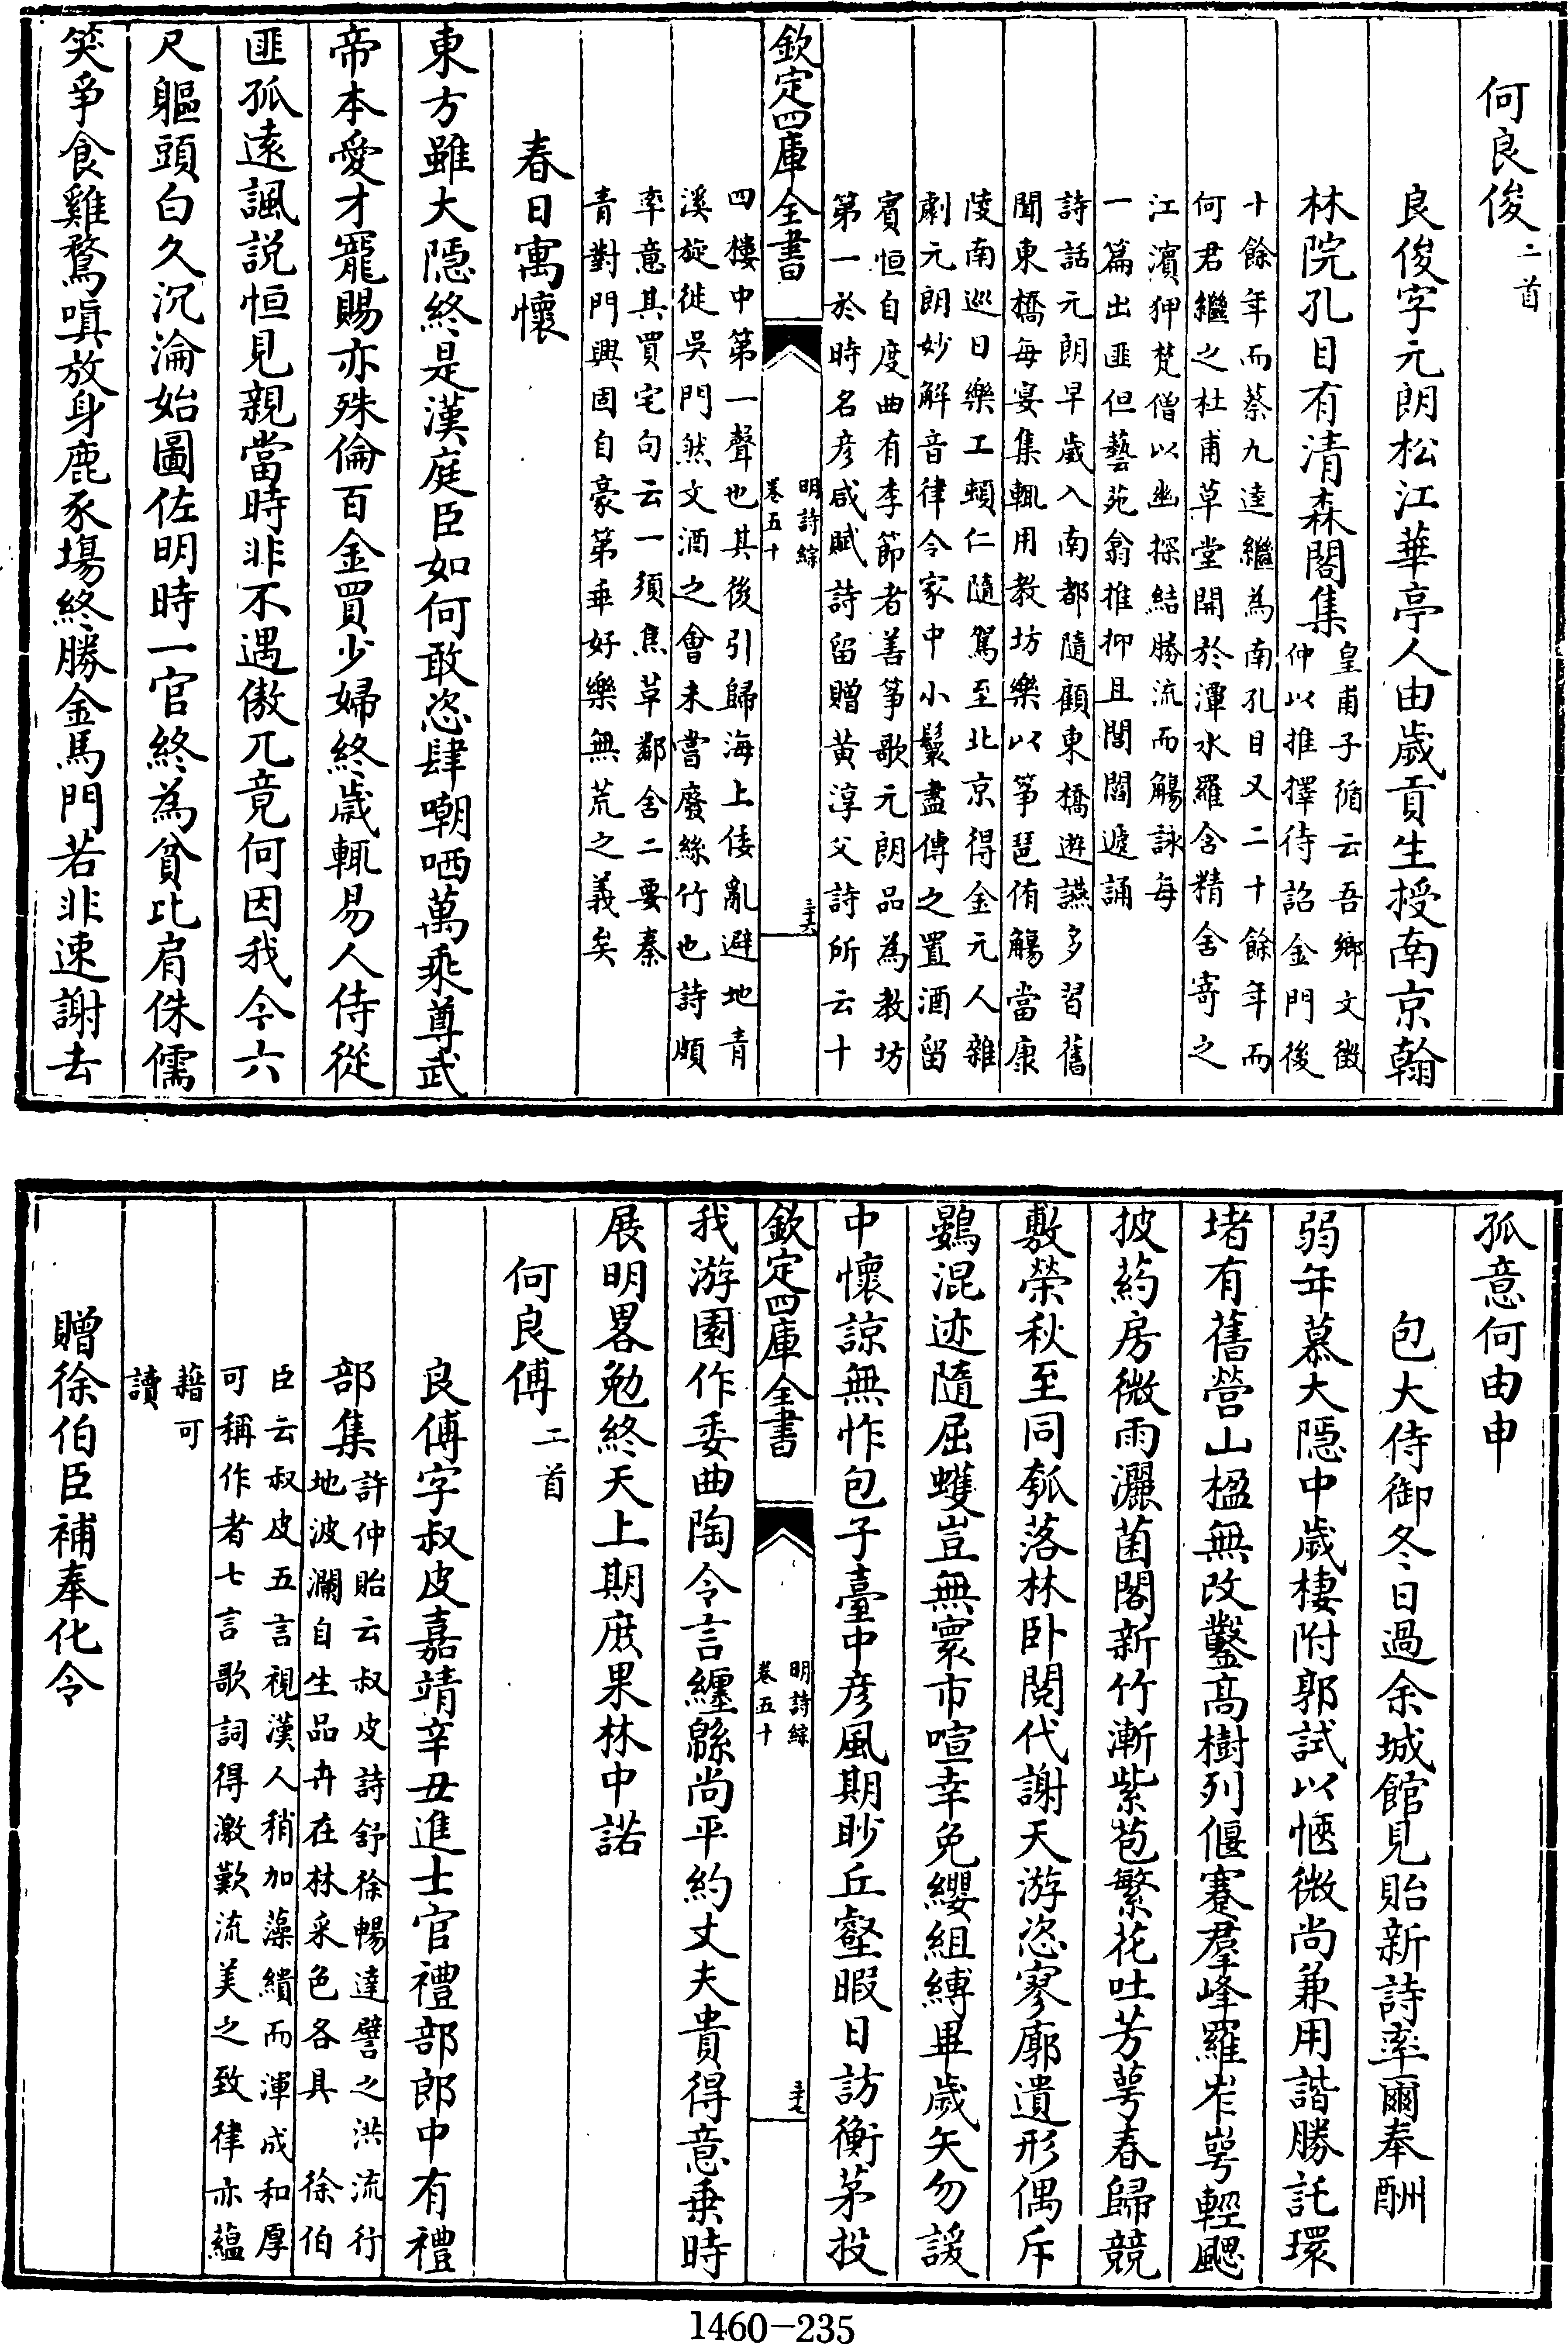 何良俊二首
良俊字元朗松江華亭人由歲貢生授南京翰
林院孔目有清森閣集
皇甫子循云吾鄉文徵
仲以推擇待詔金門後
十餘年而蔡九逵繼為南孔目又二十餘年而
何君繼之杜甫草堂開於潭水羅含精舍寄之
江濱狎梵僧以幽探結勝流而觴詠每
一篇出匪但藝苑翕推抑且閭閻遞誦
詩話元朗早歲入南都隨顧東橋遊讌多習舊
聞東橋每宴集輒用教坊樂以箏琶侑觴當康
陵南巡日樂工頓仁隨駕至北京得金元人雜
劇元朗妙解音律令家中小鬟盡傳之置酒留
賓恒自度曲有李節者善箏歌元朗品為教坊
第一於時名彥咸賦詩留贈黄淳父詩所云十
欽定四庫全書
明詩綜
卷五十
三十六
四樓中第一聲也其後引歸海上倭亂避地青
溪旋徙吳門然文酒之會未嘗廢絲竹也詩頗
率意其買宅句云一須焦草鄰舍二要秦
青對門興固自豪第乖好樂無荒之義矣
春日寓懷
東方雖大隱終是漢庭臣如何敢恣肆嘲哂萬乘尊武
帝本愛才寵賜亦殊倫百金買少婦終歲輒易人侍從
匪孤遠諷説恒見親當時非不遇傲兀竟何因我今六
尺軀頭白久沉淪始圖佐明時一官終為貧比肩侏儒
笑爭食雞鶩嗔放身鹿豕塲終勝金馬門若非速謝去
孤意何由申
包大侍御冬日過余城館見貽新詩率爾奉酬
弱年慕大隱中歲棲附郭試以愜微尚兼用諧勝託環
堵有舊營山楹無改鑿高樹列偃蹇羣峰羅岝崿輕颸
披葯房微雨灑菌閣新竹漸紫苞繁花吐芳萼春歸競
敷榮秋至同瓠落林卧閱代謝天游恣寥廓遺形偶斥
鷃混迹隨屈蠖豈無寰市喧幸免纓組縛畢歲矢勿諼
中懷諒無怍包子臺中彥風期眇丘壑暇日訪衡茅投
欽定四庫全書
明詩綜
卷五十
三十七
我游園作委曲陶令言纏緜尚平約丈夫貴得意乗時
展明畧勉終天上期庶果林中諾
何良傅二首
良傅字叔皮嘉靖辛丑進士官禮部郎中有禮
部集
許仲貽云叔皮詩舒徐暢達譬之洪流行
地波瀾自生品卉在林采色各具　徐伯
臣云叔皮五言視漢人稍加藻繢而渾成和厚
可稱作者七言歌詞得激歎流美之致律亦藴
藉可
讀
贈徐伯臣補奉化令
1460-235